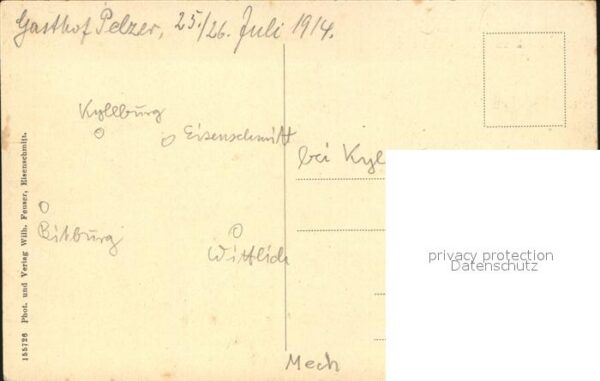 Gasthof Pelzer, 25./26. Juli 1914.
Kyllburg
Eisenschmitt
bei Kyl
Bitburg
Wittlich
Mech
155726 Phot. und Verlag Wilh. Feuser, Eisenschmitt.
privacy protection
Datenschutz